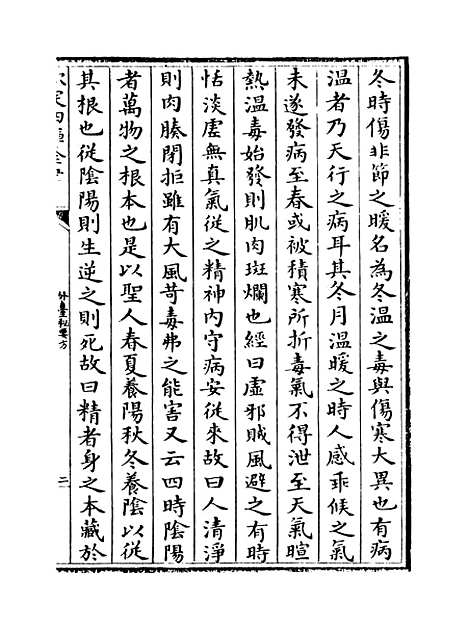 冬時傷非節之暖名為冬温之毒與傷寒大異也有病
温者乃天行之病耳其冬月温暖之時人感乖候之氣
未遂發病至春或被積寒所折毒氣不得泄至天氣暄
熱温毒始發則肌肉斑爛也經曰虛邪賊風避之有時
恬淡虛無真氣從之精神内守病安從來故曰人清淨
則肉腠閉拒雖有大風苛毒弗之能害又云四時陰陽
者萬物之根本也是以聖人春夏養陽秋冬養陰以從
其根也從陰陽則生逆之則死故曰精者身之本藏於
外臺秘要方
二